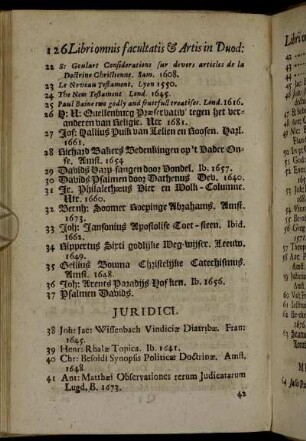 126 Libri omnis facultatis & Artis in Duod:
22 S: Goulart Considerations sur devers articles de la
Doctrine Chrestienne. Sam. 1608.
23 Le Noveau Testament. Lyon 1550.
24 The New Testament Lond. 1645.
25 Paul Baine two godly and fruitfull treatises. Lond. 1616.
26 P: A: Guellenburg Præservativ tegen het ver-
anderen van Religie. Utr. 1681.
27 Joh: Vallius Puik van Lelien en Roosen. Harl.
1661.
28 Richard Bakers Bedenkingen op 't Vader On-
se. Amst. 1654
29 Davids Harp-sangen door Vondel. Ib. 1657.
30 Davids Psalmen door Dathenus. Dev. 1640.
31 Ir. Philalethæus Vier en Wolk-Columne.
Utr. 1660.
32 Bernh: Soomer Roepinge Abrahams. Amst.
1673.
33 Joh: Jansonius Apostolise Toet-steen. Ibid.
1662.
34 Rippertus Sixti godlijke Weg-wijser. Leeuw.
1649.
35 Gellius Bouma Christelijke Catechismus.
Amst. 1628.
36 Joh: Arents Paradijs Hofken. Ib. 1656.
37 Psalmen Davids.
JURIDICI.
38 Joh: Jac: Wissenbach Vindiciæ Diatribæ. Fran:
1645.
39 Henr: Rhalæ Topica. Ib. 1641.
40 Chr: Besoldi Synopsis Politicæ Doctrinæ. Amst.
1648.
41 Ant: Matthæi Observationes rerum Judicatarum
Lugd. B. 1673.
42